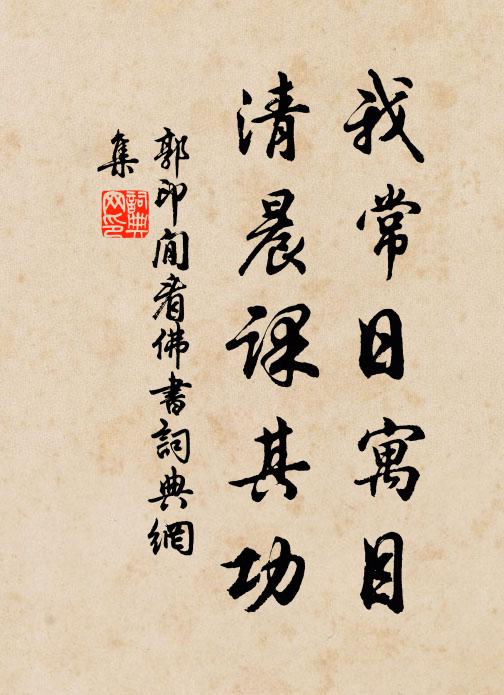 我常日寓目
清晨課其功
郭印閒看佛書詞典網
集
詞典
网印